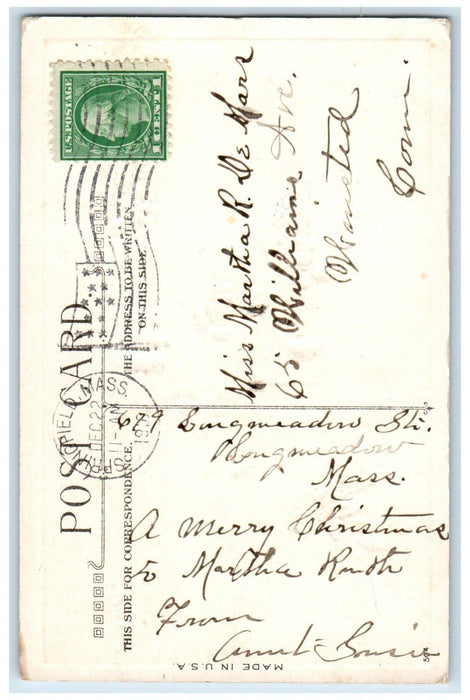 U.S. POSTAGE
1 CENT 1
POST CARD.
THE ADDRESS TO BE WRITTEN
ON THIS SIDE
THIS SIDE FOR CORRESPONDENCE.
SPRINGFIELD, MASS.
DEC 22
11 - AM
Miss Martha R. De Mars
65 Williams Ave.
Winsted
Conn.
679 Longmeadow St.
Longmeadow
Mass.
A Merry Christmas
to Martha Ruth
From
Aunt Lousie
MADE IN U.S.A.